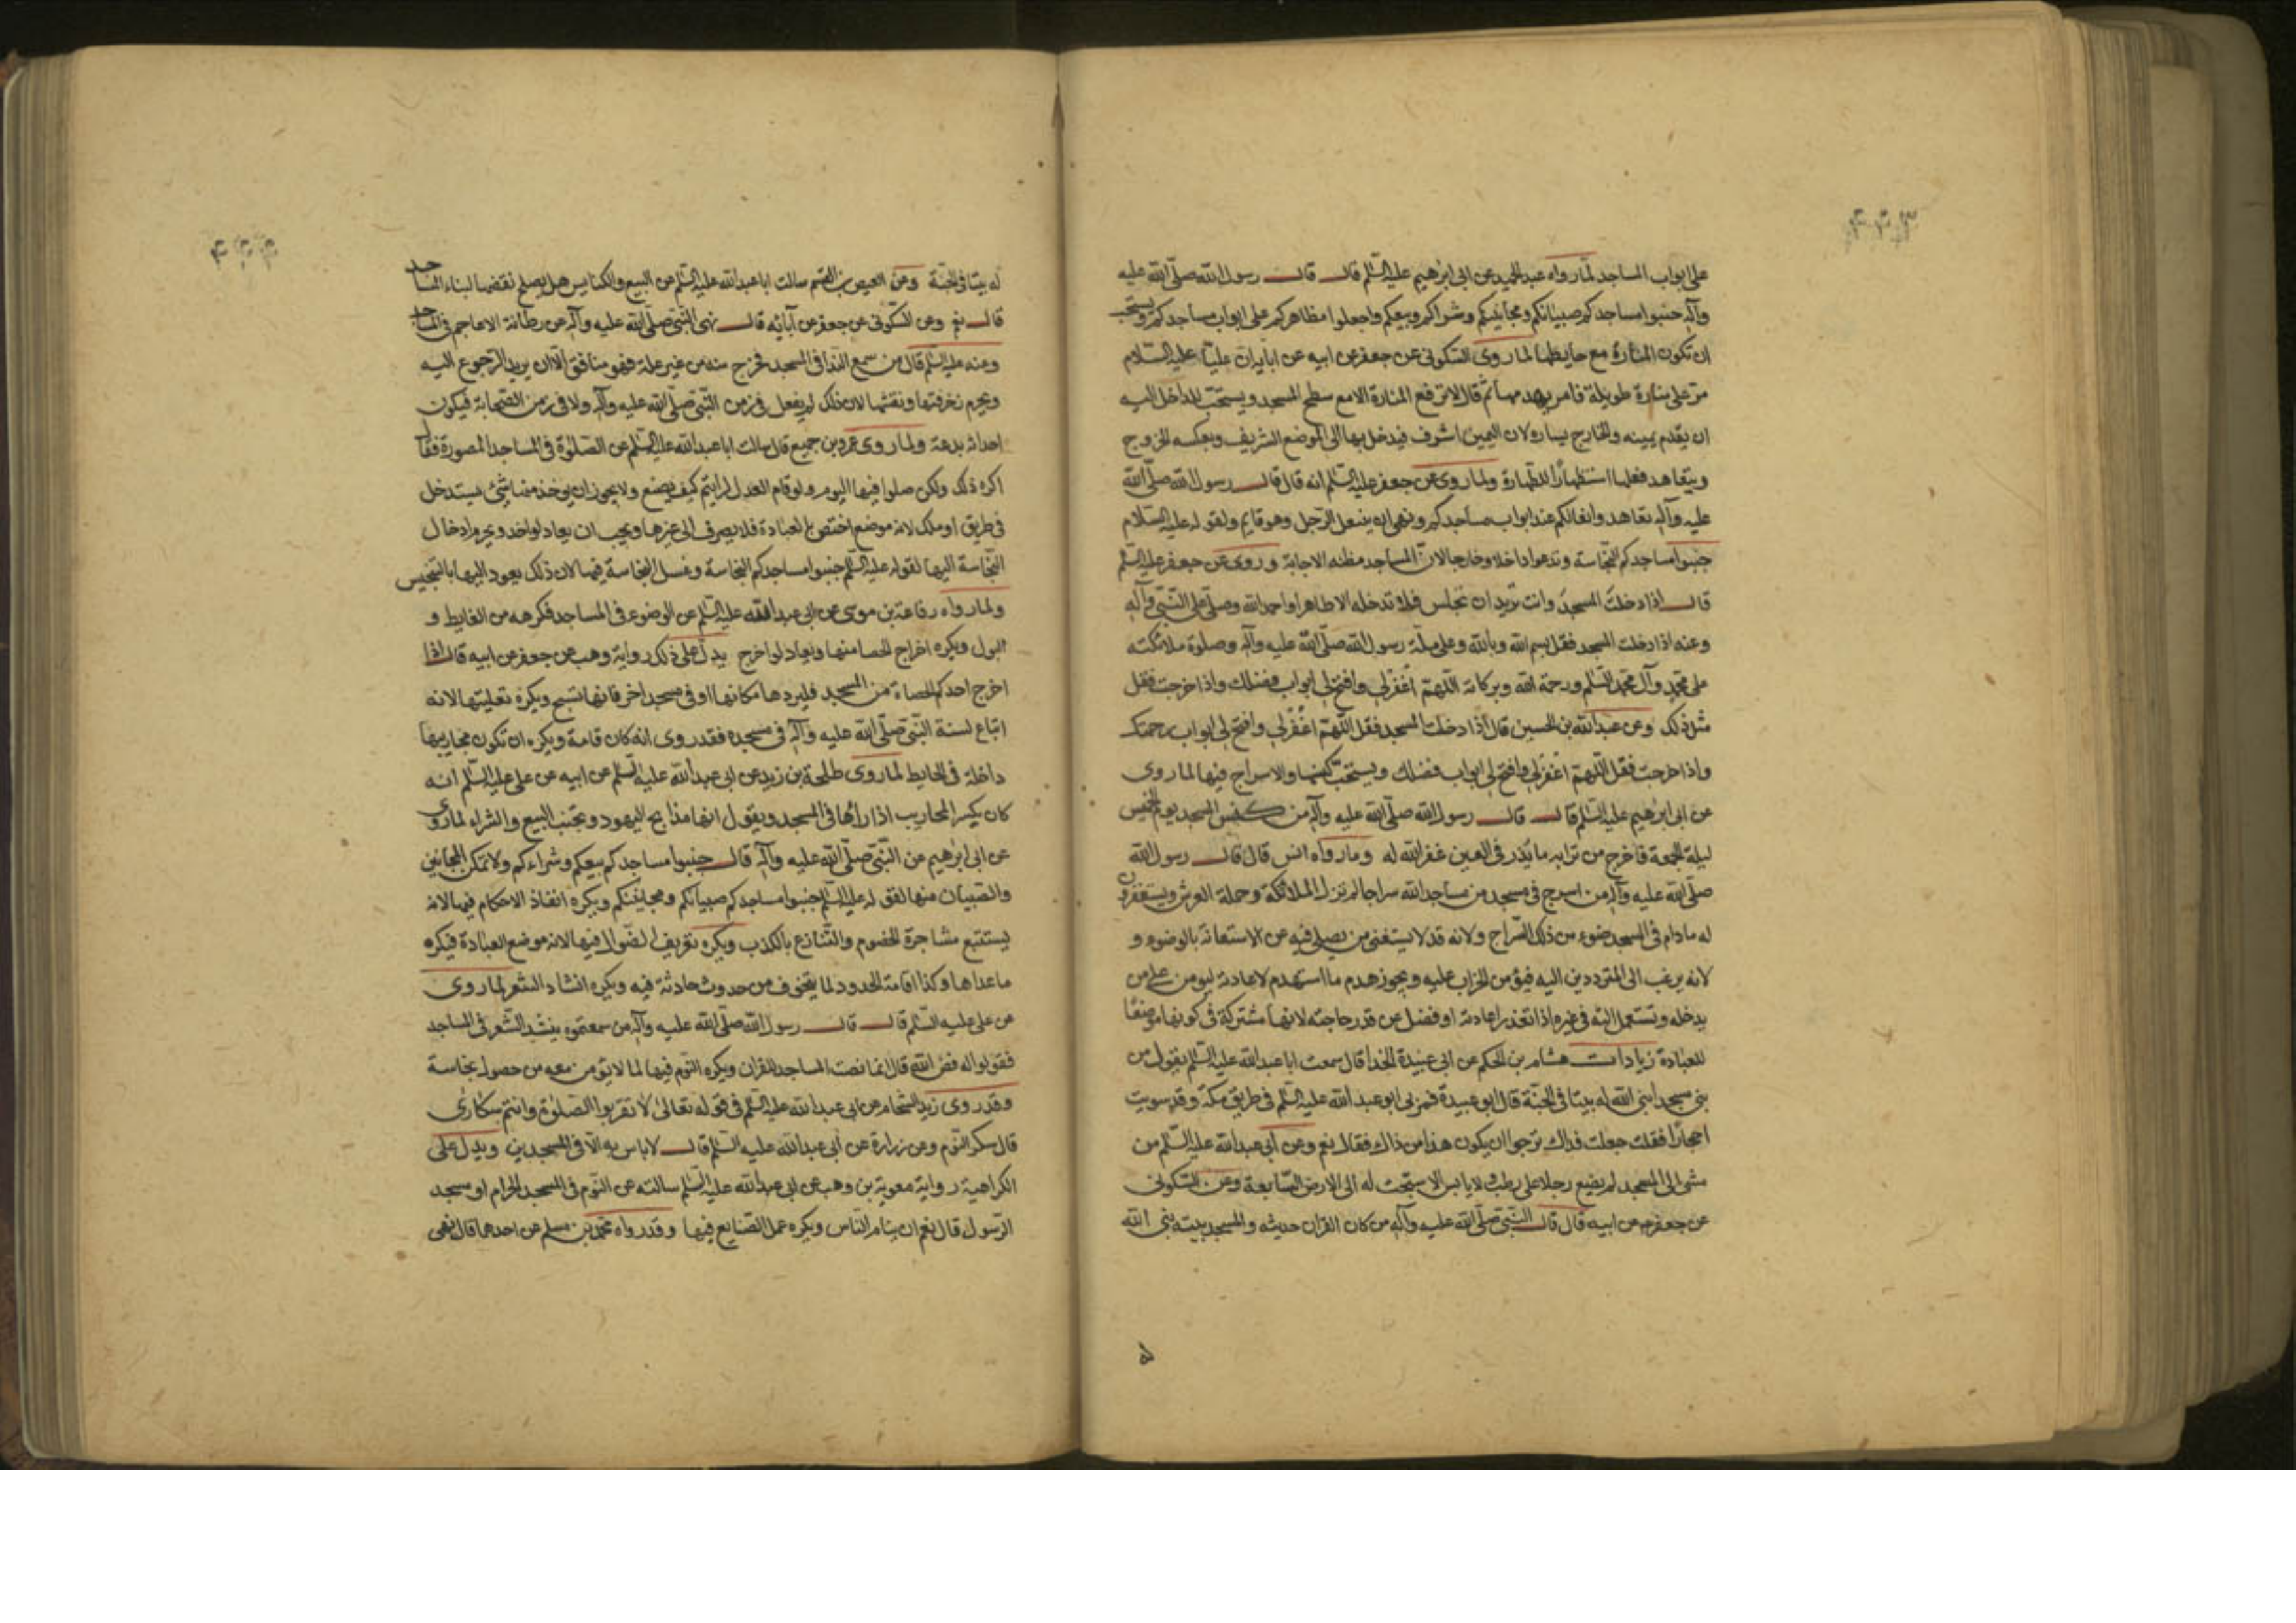 ۴۴۳
على ابواب المساجد لما رواه عبد الحميد عن ابى ابرهيم عليه السلم قال قال رسول الله صلى الله عليه
وآله جنبوا مساجدكم صبيانكم ومجانينكم وشراكم وبيعكم واجعلوا مظاهركم على ابواب مساجدكم ويستحب
ان تكون المنارة مع حايطها لما روى السكونى عن جعفر عن ابيه عن ابايه ان عليا عليه السلام
مر على منارة طويلة فامر بهدمها ثم قال لا ترفع المنارة الا مع سطح المسجد ويستحب للداخل اليه
ان يقدم يمينه والخارج يساره لان اليمين اشرف فيدخل بها الى الموضع الشريف وبعكسه الخروج
ويتعاهد نعله استظهارا للطهارة ولما روى عن جعفر عليه السلم انه قال قال رسول الله صلى الله
عليه وآله تعاهدوا نعالكم عند ابواب مساجدكم ونهى ان ينتعل الرجل وهو قايم ولقوله عليه السلام
جنبوا مساجدكم النجاسة وتدعوا داخلا وخارجا لان المساجد مظنه الاجابة وروى عن جعفر عليه السلم
قال اذا دخلت المسجد وانت تريد ان تجلس فلا تدخله الا طاهرا واحمد الله وصل على النبى وآله
وعنه اذا دخلت المسجد فقل بسم الله وبالله وعلى ملة رسول الله صلى الله عليه وآله وصلوة ملائكته
على محمد وآل محمد السلم ورحمة الله وبركاته اللهم اغفر لى وافتح لى ابواب فضلك واذا خرجت فقل
مثل ذلك وعن عبد الله بن الحسين قال اذا دخلت المسجد فقل اللهم اغفر لى وافتح لى ابواب رحمتك
واذا خرجت فقل اللهم اغفر لى وافتح لى ابواب فضلك ويستحب كنسها والاسراج فيها لما روى
عن ابى ابرهيم عليه السلم قال قال رسول الله صلى الله عليه وآله من كنس المسجد يوم الخميس
ليلة الجمعة فاخرج من ترابه ما يذر فى العين غفر الله له وما رواه انس قال قال رسول الله
صلى الله عليه وآله من اسرج فى مسجد من مساجد الله سراجا لم تزل الملائكة وحملة العرش ويستغفرون
له ما دام فى المسجد ضوء من ذلك السراج ولانه قد لا يستغنى من يصلى فيه عن الاستعانة بالوضوء و
لانه يرغب الى المترددين اليه فيؤمن الخراب عليه ويجوز هدم ما استهدم لاعادته ليومن على من
يدخله وتستعمل الته فى غيره اذا تعذر اعادته او فضل عن قدر حاجته لانها مشتركة فى كونها موضعا
للعبادة زيادات هشام بن الحكم عن ابى عبيدة الحذا قال سمعت ابا عبد الله عليه السلم يقول من
بنى مسجدا بنى الله له بيتا فى الجنة قال ابو عبيدة فمر بى ابو عبد الله عليه السلم فى طريق مكة وقد سويت
احجارا فقلت جعلت فداك نرجوا ان يكون هذا من ذاك فقال نعم وعن ابى عبد الله عليه السلم من
مشى الى المسجد لم يضع رجلا على رطب ولا يابس الا سبحت له الى الارض السابعة وعن السكونى
عن جعفر عن ابيه قال قال النبى صلى الله عليه وآله من كان القران حديثه والمسجد بيته بنى الله
له
۴۴۴
له بيتا فى الجنة وعن العيص بن القسم سالت ابا عبد الله عليه السلم عن البيع والكنايس هل يصلح نقضها لبناء المساجد
قال نعم وعن السكونى عن جعفر عن آبائه قال نهى النبى صلى الله عليه وآله عن رطانة الاعاجم فى المساجد
وعنه عليه السلم قال من سمع الندا فى المسجد فخرج منه من غير علة فهو منافق الا ان يريد الرجوع اليه
ويحرم زخرفتها ونقشها لان ذلك لم يفعل فى زمن النبى صلى الله عليه وآله ولا فى زمن الصحابة فيكون
احداثه بدعة ولما روى عمرو بن جميع قال سالت ابا عبد الله عليه السلم عن الصلوة فى المساجد المصورة فقال
اكره ذلك ولكن صلوا فيها اليوم ولو قام العدل لرايتم كيف يصنع ولا يجوز ان يوخذ منها شئ يستدخل
فى طريق او ملك لانه موضع اختص بالعبادة فلا يصرف الى غيرها ويجب ان يعاد لو اخذ ويحرم ادخال
النجاسة اليها لقوله عليه السلم جنبوا مساجدكم النجاسة وغسل النجاسة فيها لان ذلك يعود اليها بالتنجيس
ولما رواه رفاعة بن موسى عن ابى عبد الله عليه السلم عن الوضوء فى المساجد فكرهه من الغايط و
البول ويكره اخراج الحصا منها ويعاد لو اخرج يدل على ذلك رواية وهب عن جعفر عن ابيه قال اذا
اخرج احدكم الحصاة من المسجد فليردها مكانها او فى مسجد اخر فانها تسبح ويكره تعليتها لانه
اتباع لسنة النبى صلى الله عليه وآله فى مسجده فقد روى انه كان قامة ويكره ان تكون محاريبها
داخلة فى الحايط لما روى طلحة بن زيد عن ابى عبد الله عليه السلم عن ابيه عن على عليه السلم انه
كان يكسر المحاريب اذا راها فى المسجد ويقول انها مذابح اليهود وتجنب البيع والشراء لما روى
عن ابى ابرهيم عن النبى صلى الله عليه وآله قال جنبوا مساجدكم بيعكم وشراءكم ولا تمكن المجانين
والصبيان منها لقوله عليه السلم جنبوا مساجدكم صبيانكم ومجانينكم ويكره انفاذ الاحكام فيها لانه
يستتبع مشاجرة الخصوم والتنازع بالكذب ويكره تعريف الضوال فيها لانه موضع العبادة فيكره
ما عداها وكذا اقامة الحدود لما يتخوف من حدوث حادثة فيه ويكره انشاد الشعر لما روى
عن على عليه السلم قال قال رسول الله صلى الله عليه وآله من سمعتموه ينشد الشعر فى المساجد
فقولوا له فض الله قال انما نصبت المساجد للقران ويكره النوم فيها لما لا يؤمن معه من حصول نجاسة
وقد روى زيد الشحام عن ابى عبد الله عليه السلم فى قوله تعالى لا تقربوا الصلوة وانتم سكارى
قال سكر النوم وعن زرارة عن ابى عبد الله عليه السلم قال لا باس به الا فى المسجدين ويدل على
الكراهية رواية معوية بن وهب عن ابى عبد الله عليه السلم سالته عن النوم فى المسجد الحرام او مسجد
الرسول قال نعم ان ينام الناس ويكره عمل الصنايع فيها وقد رواه محمد بن مسلم عن احدهما قال نهى